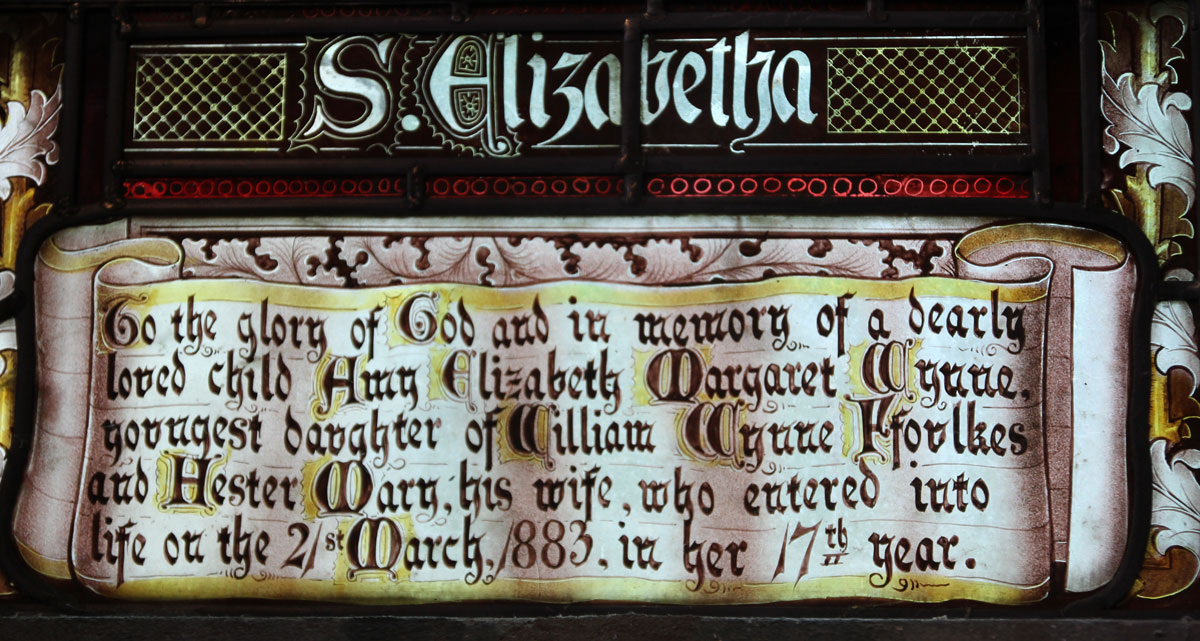 S. Elizabetha
To the glory of God and in memory of a dearly
loved child Amy Elizabeth Margaret Wynne,
youngest daughter of William Wynne Ffoulkes
and Hester Mary, his wife, who entered into
life on the 21st March, 1883, in her 17th year.